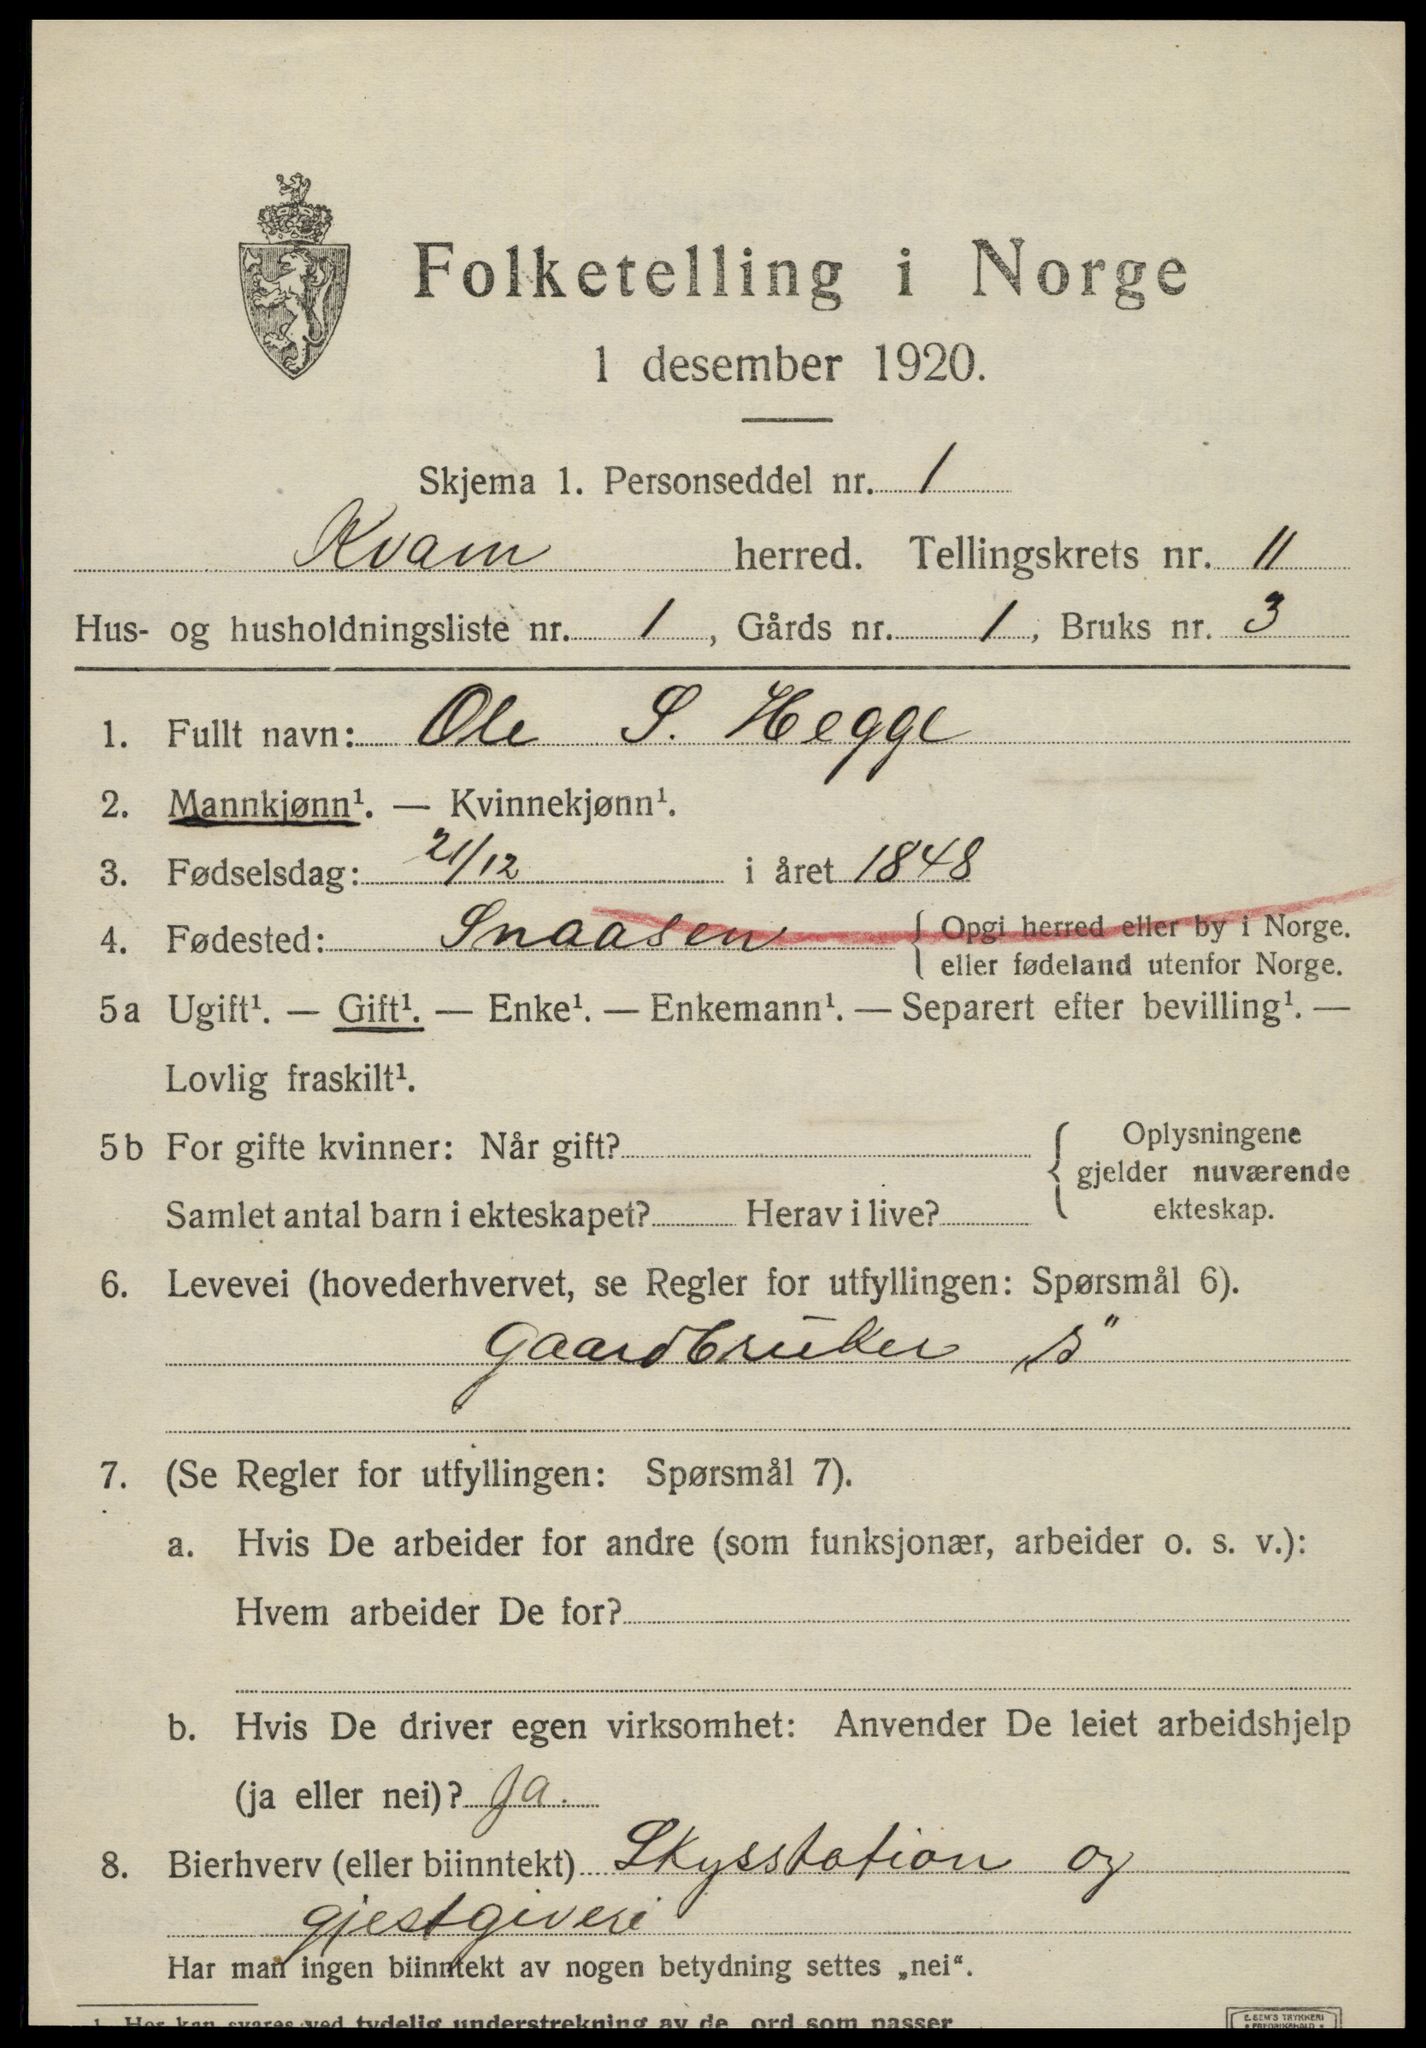 Folketelling i Norge
1 desember 1920.
Skjema 1. Personseddel nr. 1
Kvam herred. Tellingskrets nr. 11
Hus- og husholdningsliste nr. 1, Gårds nr. 1, Bruks nr. 3
1. Fullt navn: Ole S. Hegge
2. Mannkjønn¹. — Kvinnekjønn¹.
3. Fødselsdag: 21/12 i året 1848
4. Fødested: Snaasen { Opgi herred eller by i Norge.
eller fødeland utenfor Norge.
5a Ugift¹. — Gift¹. — Enke¹. — Enkemann¹. — Separert efter bevilling¹. —
Lovlig fraskilt¹.
5b For gifte kvinner: Når gift? { Oplysningene
gjelder nuværende
Samlet antal barn i ekteskapet? Herav i live? ekteskap.
6. Levevei (hovederhvervet, se Regler for utfyllingen: Spørsmål 6).
Gaardbruker „s“
7. (Se Regler for utfyllingen: Spørsmål 7).
a. Hvis De arbeider for andre (som funksjonær, arbeider o. s. v.):
Hvem arbeider De for?
b. Hvis De driver egen virksomhet: Anvender De leiet arbeidshjelp
(ja eller nei)? Ja.
8. Bierhverv (eller biinntekt) Skysstation og
gjestgiveri
Har man ingen biinntekt av nogen betydning settes „nei“.
1 Her kan svares ved tydelig understrekning av de ord som passer
E. SEM'S TRYKKERI
FREDRIKSHALD